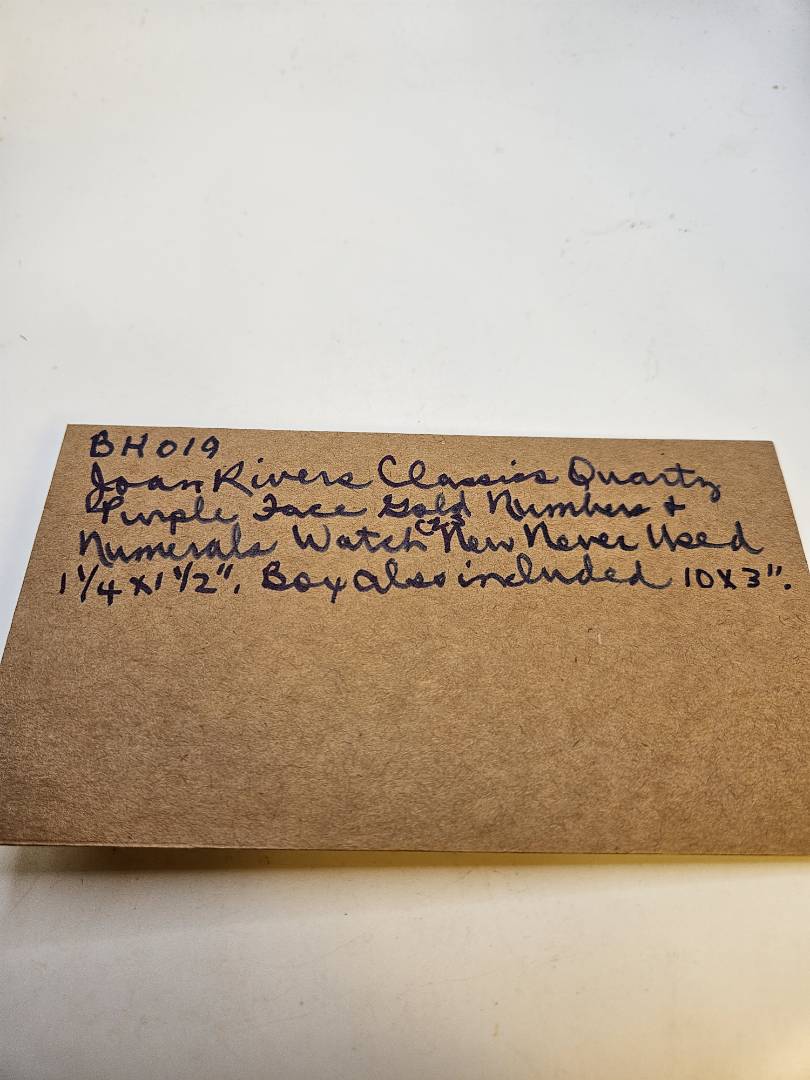 BH019
Joan Rivers Classics Quartz
Purple Face Gold Numbers +
Numerals Watch New Never Used
1 1/4 x 1 1/2". Box also included 10 x 3".